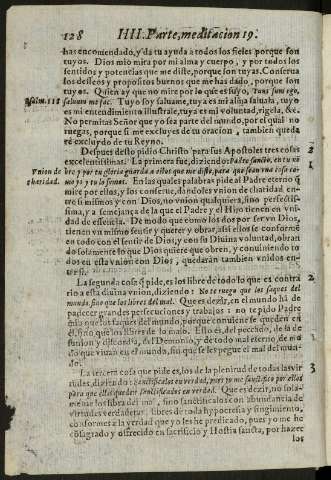 128 IIII. Parte, meditacion 19.
has encomendado, y da tu ayuda a todos los fieles porque son
tuyos. Dios mio mira por mi alma y cuerpo, y por todos los
sentidos y potencias que me diste, porque son tuyas. Conserua
los desseos y propositos buenos que me has dado, porque son
tuyos. Quien ay que no mire por lo que es suyo, Tuus sum ego,
Psalm. 118 saluum me fac. Tuyo soy saluame, tuya es mi alma saluala, tuyo
es mi entendimiento illustrale, tuya es mi voluntad, rigela, &c.
No permitas Señor que yo sea parte del mundo, por el qual no
ruegas, porque si me excluyes de tu oracion, tambien queda
rè excluydo de tu Reyno.
Despues desto pidio Christo para sus Apostoles tres cosas
1
excelentissimas. La primera fue, diziendo: Padre sancto, en tu nō
Vnion de bre y por tu gloria guarda a estos que me diste, para que sean vna cosa co
charidad. mo yo y tu lo somos. En las quales palabras pide al Padre eterno q̄
mire por ellos, y los conserue, dandoles vnion de charidad en-
tre si mismos y con Dios, no vnion qualquiera, sino perfectis-
sima, y a semejança de la que el Padre y el Hijo tienen en vni-
dad de essencia. De modo que como los dos por ser vn Dios,
tienen vn mismo sentir y querer y obrar, assi ellos se conformē
en todo con el sentir de Dios, y con su Diuina voluntad, obran
do solamente lo que Dios quiere que obren, y conuiniendo to
dos en esta vnion con Dios, quedaràn tambien vnidos en-
tre si.
La segunda cosa q̄ pide, es los libre de todo lo que es contra
2
rio a esta diuina vnion, diziendo: No te ruego que los saques del
mundo, sino que los libres del mal. Que es dezir, en el mundo hā de
padecer grandes persecuciones y trabajos: no te pido Padre
mio que los saques del mundo, porque conuiene se queden en
el, sino que los libres de lo malo. Esto es, del peccado, de la de
sunion y discordia, del Demonio, y de todo mal eterno, de mo
do que viuan en el mundo, sin que se les pegue el mal del mun
do.
La tercera cosa que pide, es, los de la plenitud de todas las vir
3
tudes, diziendo: sanctificalos en verdad, pues yo me sanctifico por ellos
para que ellos queden sanctificados en verdad. Que es dezir, no sola-
mente los libra del mal, sino sanctificalos con abundancia de
virtudes verdaderas, libres de toda hypocresia y fingimiento,
conformes a la verdad que yo les he predicado, pues yo me he
cōsagrado y ofrecido en sacrificio y Hostia sancta, por hazer
los